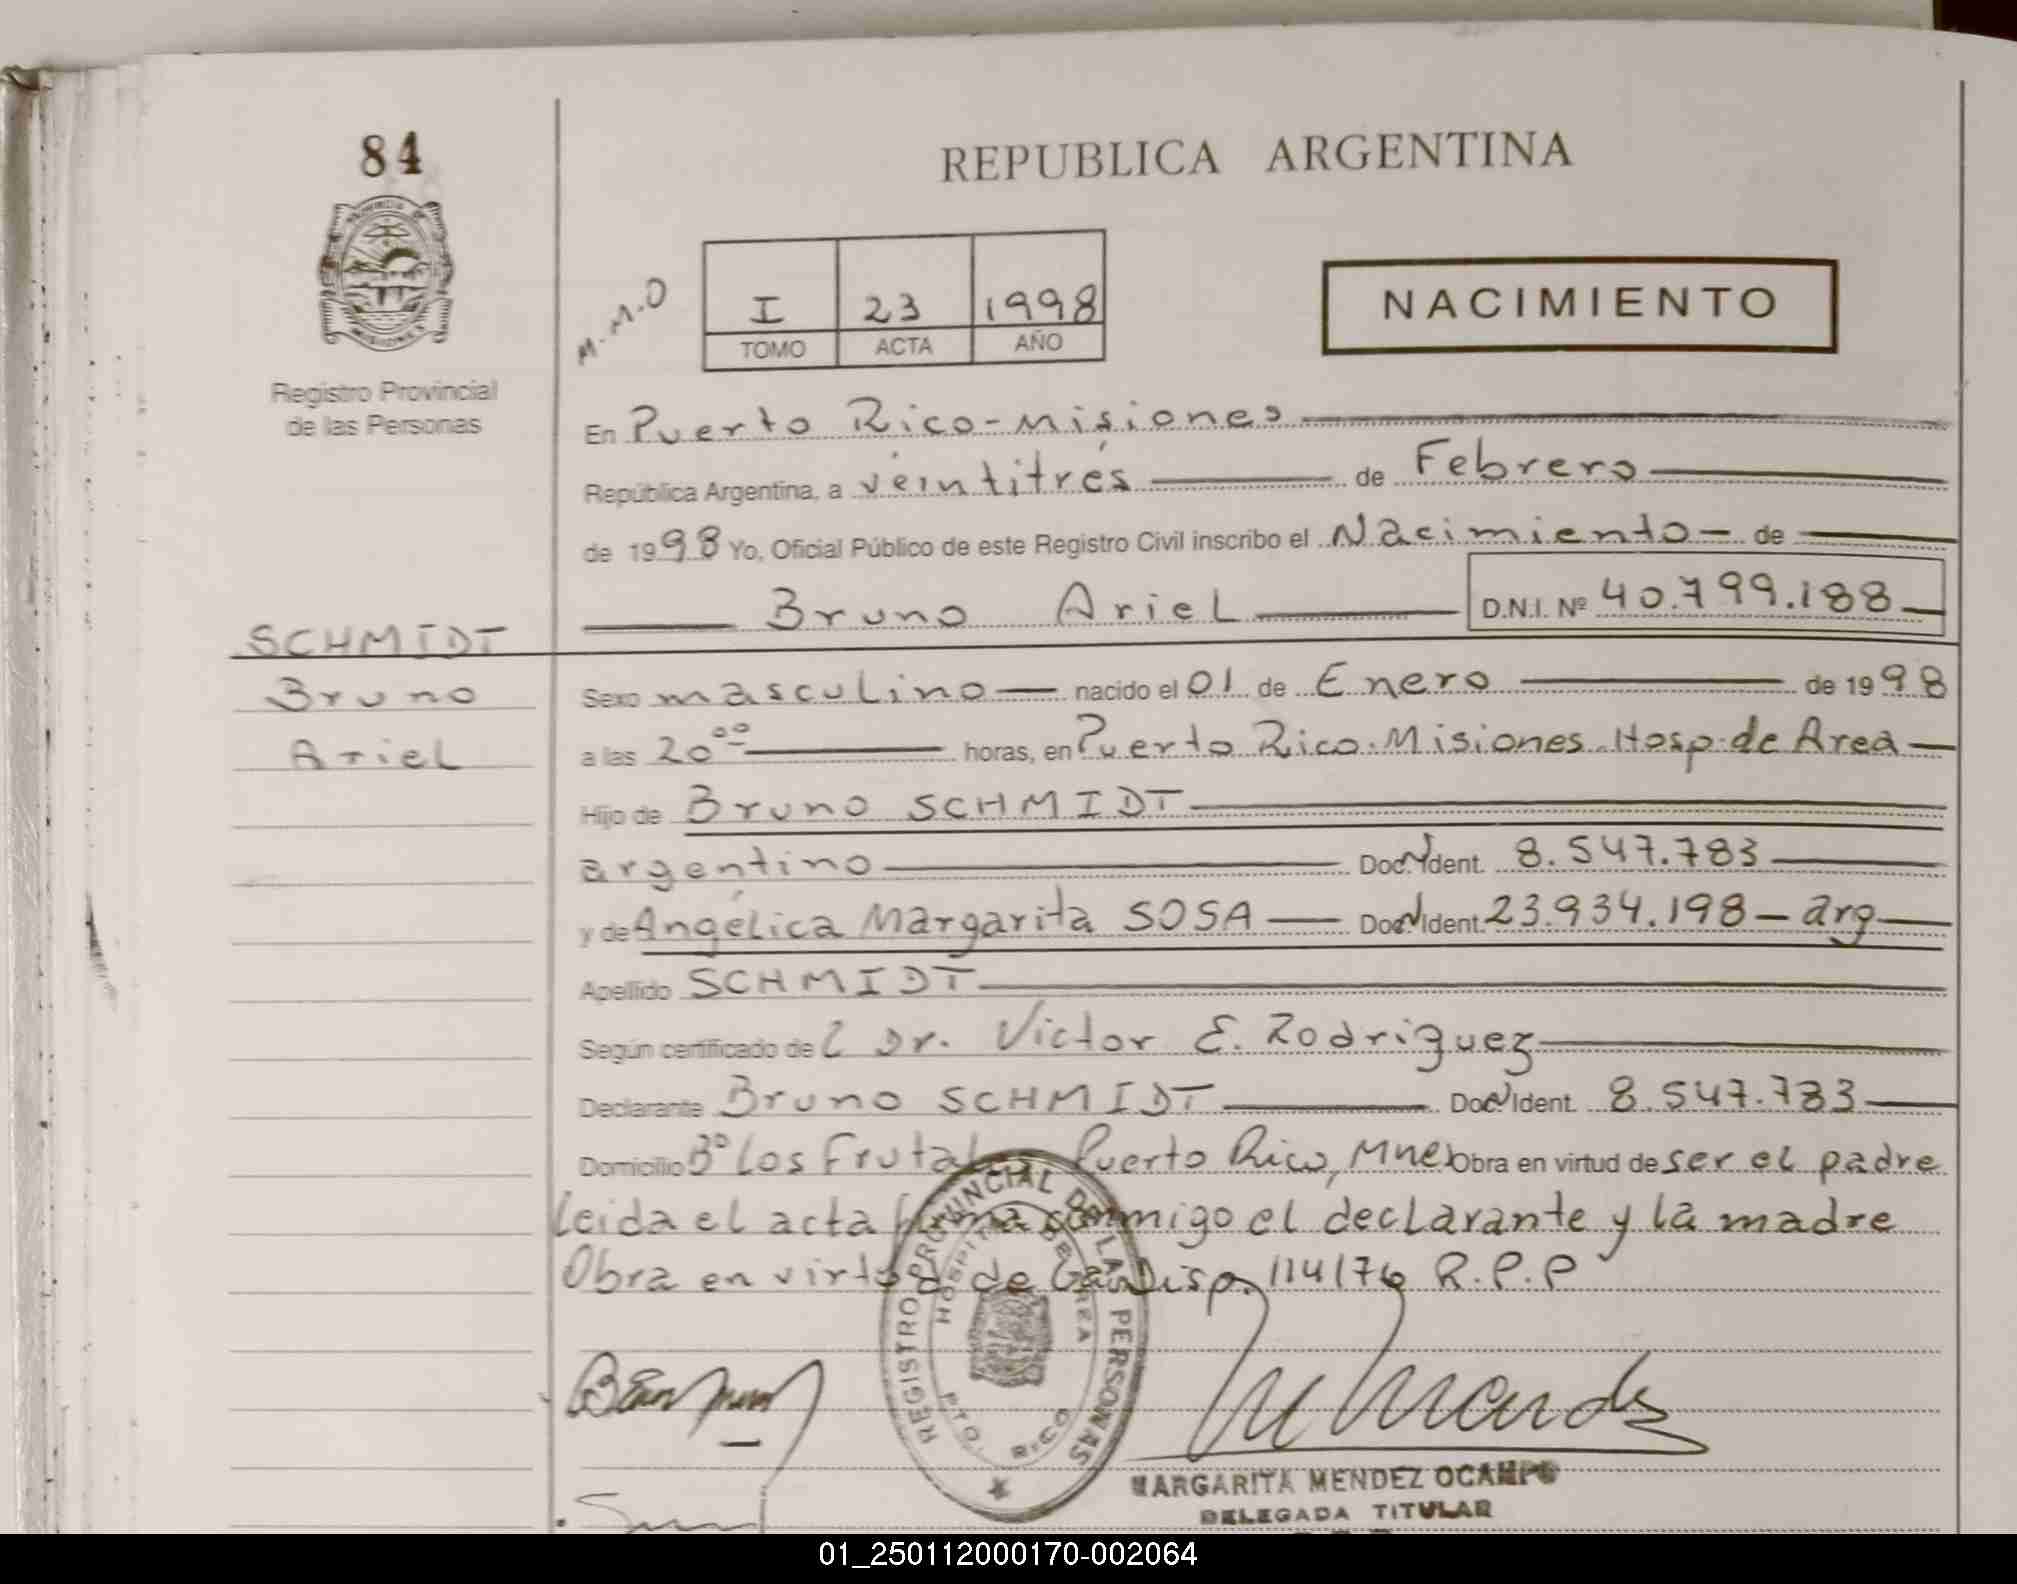 84
REPUBLICA ARGENTINA
M.M.O
I 23 1998
TOMO ACTA AÑO
NACIMIENTO
Registro Provincial
de las Personas
En Puerto Rico-Misiones
República Argentina, a veintitrés de Febrero
de 1998 Yo, Oficial Público de este Registro Civil inscribo el Nacimiento - de
Bruno Ariel D.N.I. Nº 40.799.188
SCHMIDT
Bruno
Ariel
Sexo masculino nacido el 01 de Enero de 1998
a las 20⁰⁰ horas, en Puerto Rico-Misiones Hosp. de Area
Hijo de Bruno SCHMIDT
argentino Doc. Ident. 8.547.783
y de Angélica Margarita SOSA Doc. Ident. 23.934.198 - arg
Apellido SCHMIDT
Según certificado del Dr. Victor E. Rodriguez
Declarante Bruno SCHMIDT Doc. Ident. 8.547.783
Domicilio Bº Los Frutales Puerto Rico, Mnes Obra en virtud de ser el padre
Leida el acta firma conmigo el declarante y la madre
Obra en virtud de la Disp. 114/76 R.P.P
REGISTRO PROVINCIAL DE LAS PERSONAS
HOSPITAL DE AREA
PTO. RICO
MARGARITA MENDEZ OCAMPO
DELEGADA TITULAR
01_250112000170-002064